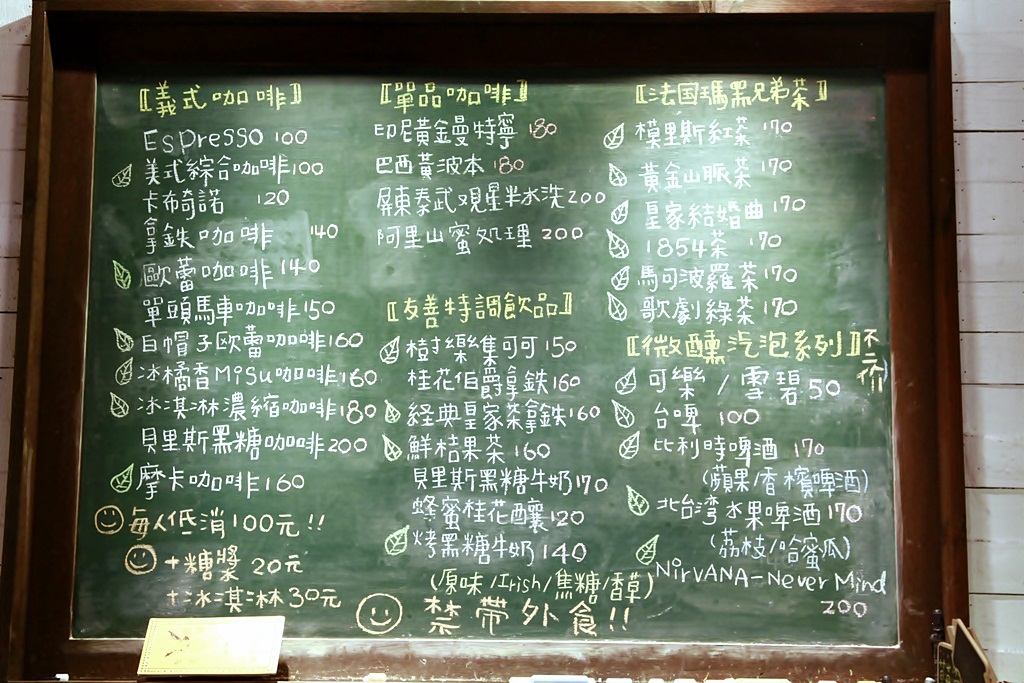 〖義式咖啡〗
Espresso 100
美式綜合咖啡100
卡布奇諾 120
拿鐵咖啡 140
歐蕾咖啡140
單頭馬車咖啡150
白帽子欧蕾咖啡160
冰橘香MiSu咖啡160
冰淇淋濃縮咖啡180
貝里斯黑糖咖啡200
摩卡咖啡160
每人低消100元!!
+糖漿 20元
+冰淇淋30元
〖單品咖啡〗
印尼黃金曼特寧 180
巴西黃波本 180
屏東泰武观星半水洗200
阿里山蜜処理 200
〖友善特調飲品〗
樹揲集可可150
桂花伯爵拿鉄160
経典皇家茶拿鉄160
鮮桔果茶160
貝里斯黑糖牛奶170
蜂蜜桂花釀120
烤黑糖牛奶140
(原味/Irish/焦糖/香草)
禁帶外食!!
〖法国瑪黑兄弟茶〗
模里斯紅茶 170
黃金山脈茶 170
皇家結婚曲170
1854茶 170
馬可波羅茶170
歌劇綠茶170
〖微醺汽泡系列〗不二价
可樂/雪碧50
台啤 100
比利時啤酒 170
(蘋果/香檳啤酒)
北台湾水果啤酒170
(荔枝/哈蜜瓜)
NirVANA-Never Mind
200